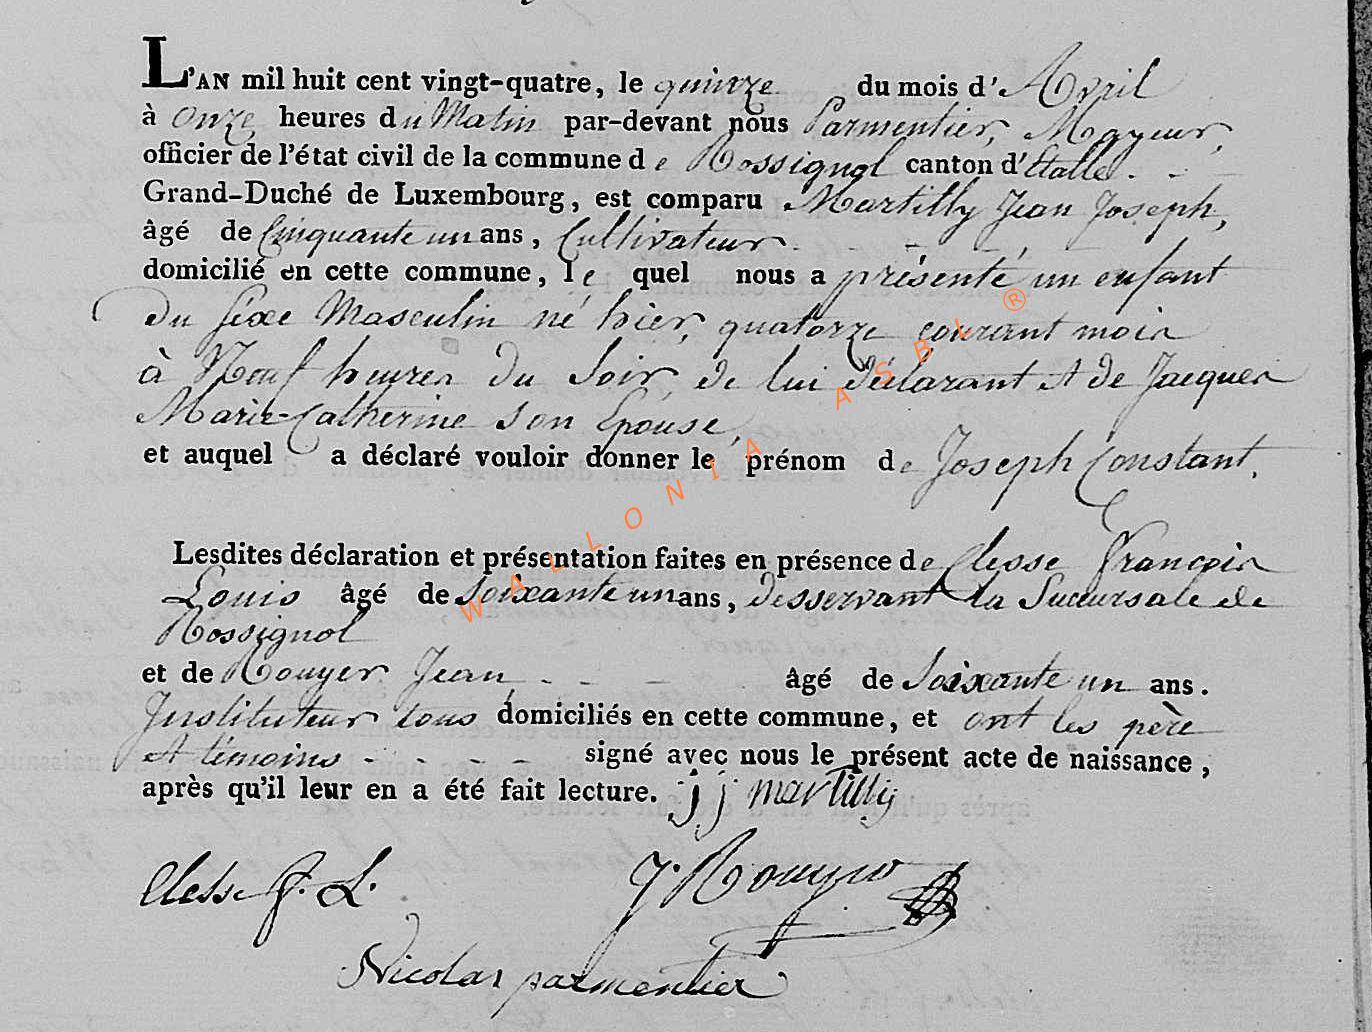 L'AN mil huit cent vingt-quatre, le quinze du mois d'Avril
à Onze heures du Matin par-devant nous Parmentier, Mayeur,
officier de l'état civil de la commune de Rossignol canton d'Etalle. - -
Grand-Duché de Luxembourg, est comparu Martilly Jean Joseph,
âgé de Cinquante un ans, Cultivateur. - - -
domicilié en cette commune, le quel nous a présenté un enfant
Du sexe Masculin né hier, quatorze courant mois
à Neuf heures du Soir, de lui déclarant et de Jacques
Marie-Catherine Son Epouse,
et auquel a déclaré vouloir donner le prénom de Joseph Constant.
Lesdites déclaration et présentation faites en présence de Clesse François
Louis âgé de Soixante un ans, desservant la Succursale de
Rossignol
et de Rouyer Jean - - - âgé de Soixante un ans.
Instituteur tous domiciliés en cette commune, et ont les père
et témoins - - - - signé avec nous le présent acte de naissance,
après qu'il leur en a été fait lecture. j j martilly
Clesse F. L. J. Rouyer
Nicolas parmentier
WALLONIA ASBL ®